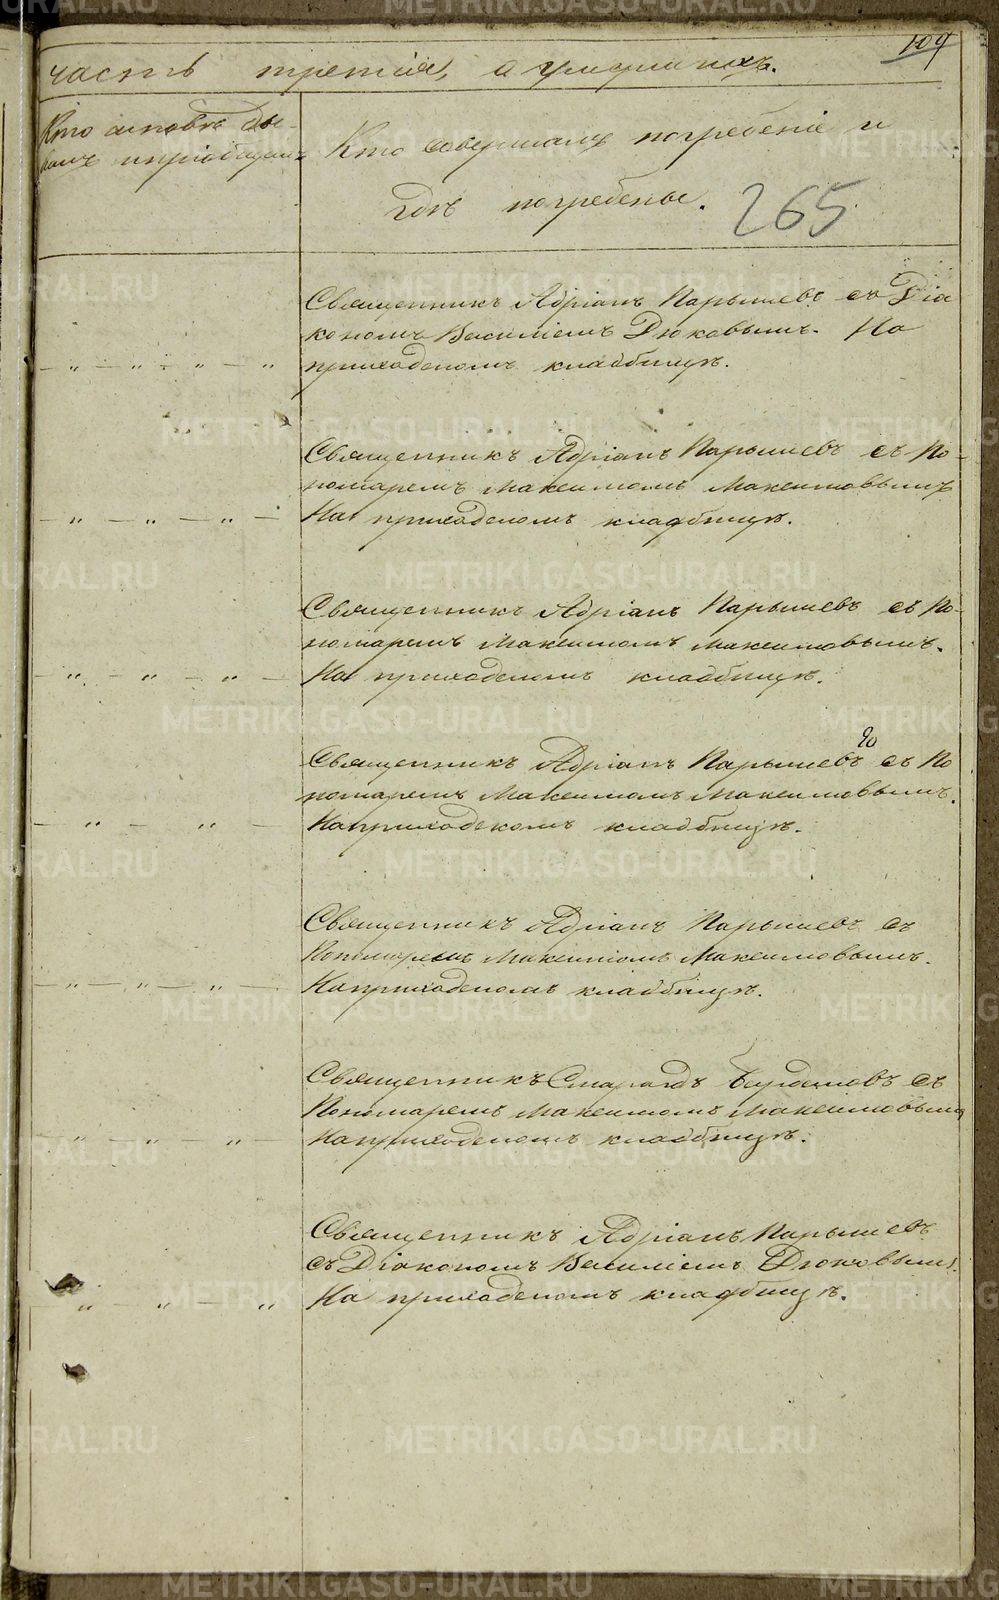 109
часть третія, о умершихъ.
Кто исповѣ ды-
валъ и пріобщалъ
Кто совершалъ погребеніе и
гдѣ погребены.
265
Священникъ Адріанъ Парышевъ съ Діа
кономъ Василіемъ Дюковымъ. На
приходскомъ кладбищѣ.
Священникъ Адріанъ Парышевъ съ По-
номаремъ Максимомъ Максимовымъ
На приходскомъ кладбищѣ.
Священникъ Адріанъ Парышевъ съ По-
номаремъ Максимомъ Максимовымъ.
На приходскомъ кладбищѣ.
Священникъ Адріанъ Парышевъ съ По
номаремъ Максимомъ Максимовымъ.
На приходскомъ кладбищѣ.
Священникъ Адріанъ Парышевъ съ
Пономаремъ Максимомъ Максимовымъ.
На приходскомъ кладбищѣ.
Священникъ съ
Пономаремъ Максимомъ Максимовымъ
На приходскомъ кладбищѣ.
Священникъ Адріанъ Парышевъ
съ Діакономъ Василіемъ Дюковымъ.
На приходскомъ кладбищѣ.
METRIKI.GASO-URAL.RU